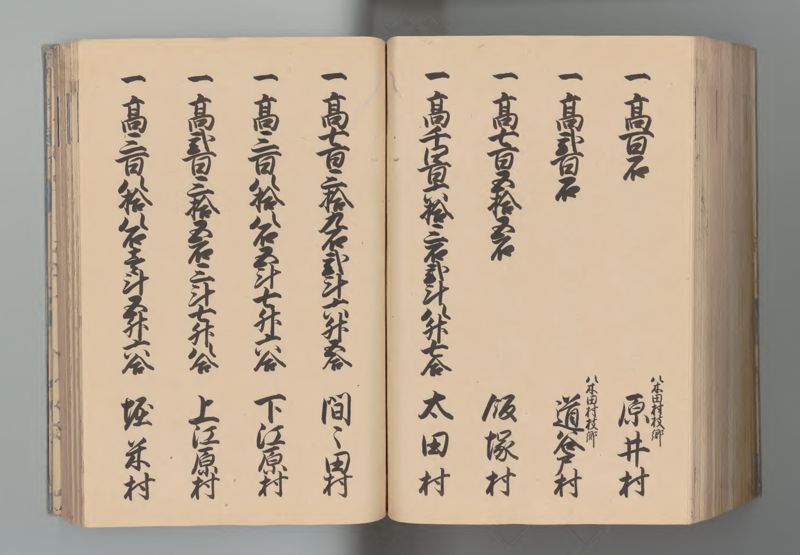 一 高百石
八木田村枝郷
原井村
一 高弐百石
八木田村枝郷
道谷戸村
一 高七百五拾五石
飯塚村
一 高千四百五拾三石弐斗八升七合
太田村
一 高七百三拾九石弐斗六升五合
間々田村
一 高三百八拾八石五斗七升六合
下江原村
一 高弐百三拾五石三斗七升八合
上江原村
一 高三百八拾八石壱斗五升六合
堀米村